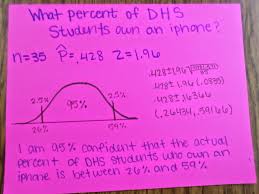 What percent of DHS
Students own an iphone?
n=35 P̂=.428 Z=1.96
.428±1.96
.428±1.96(.0835)
.428±.16366
(.26434,.59166)
2.5% 95% 2.5%
26% 59%
I am 95% confident that the actual
percent of DHS students who own an
iphone is between 26% and 59%